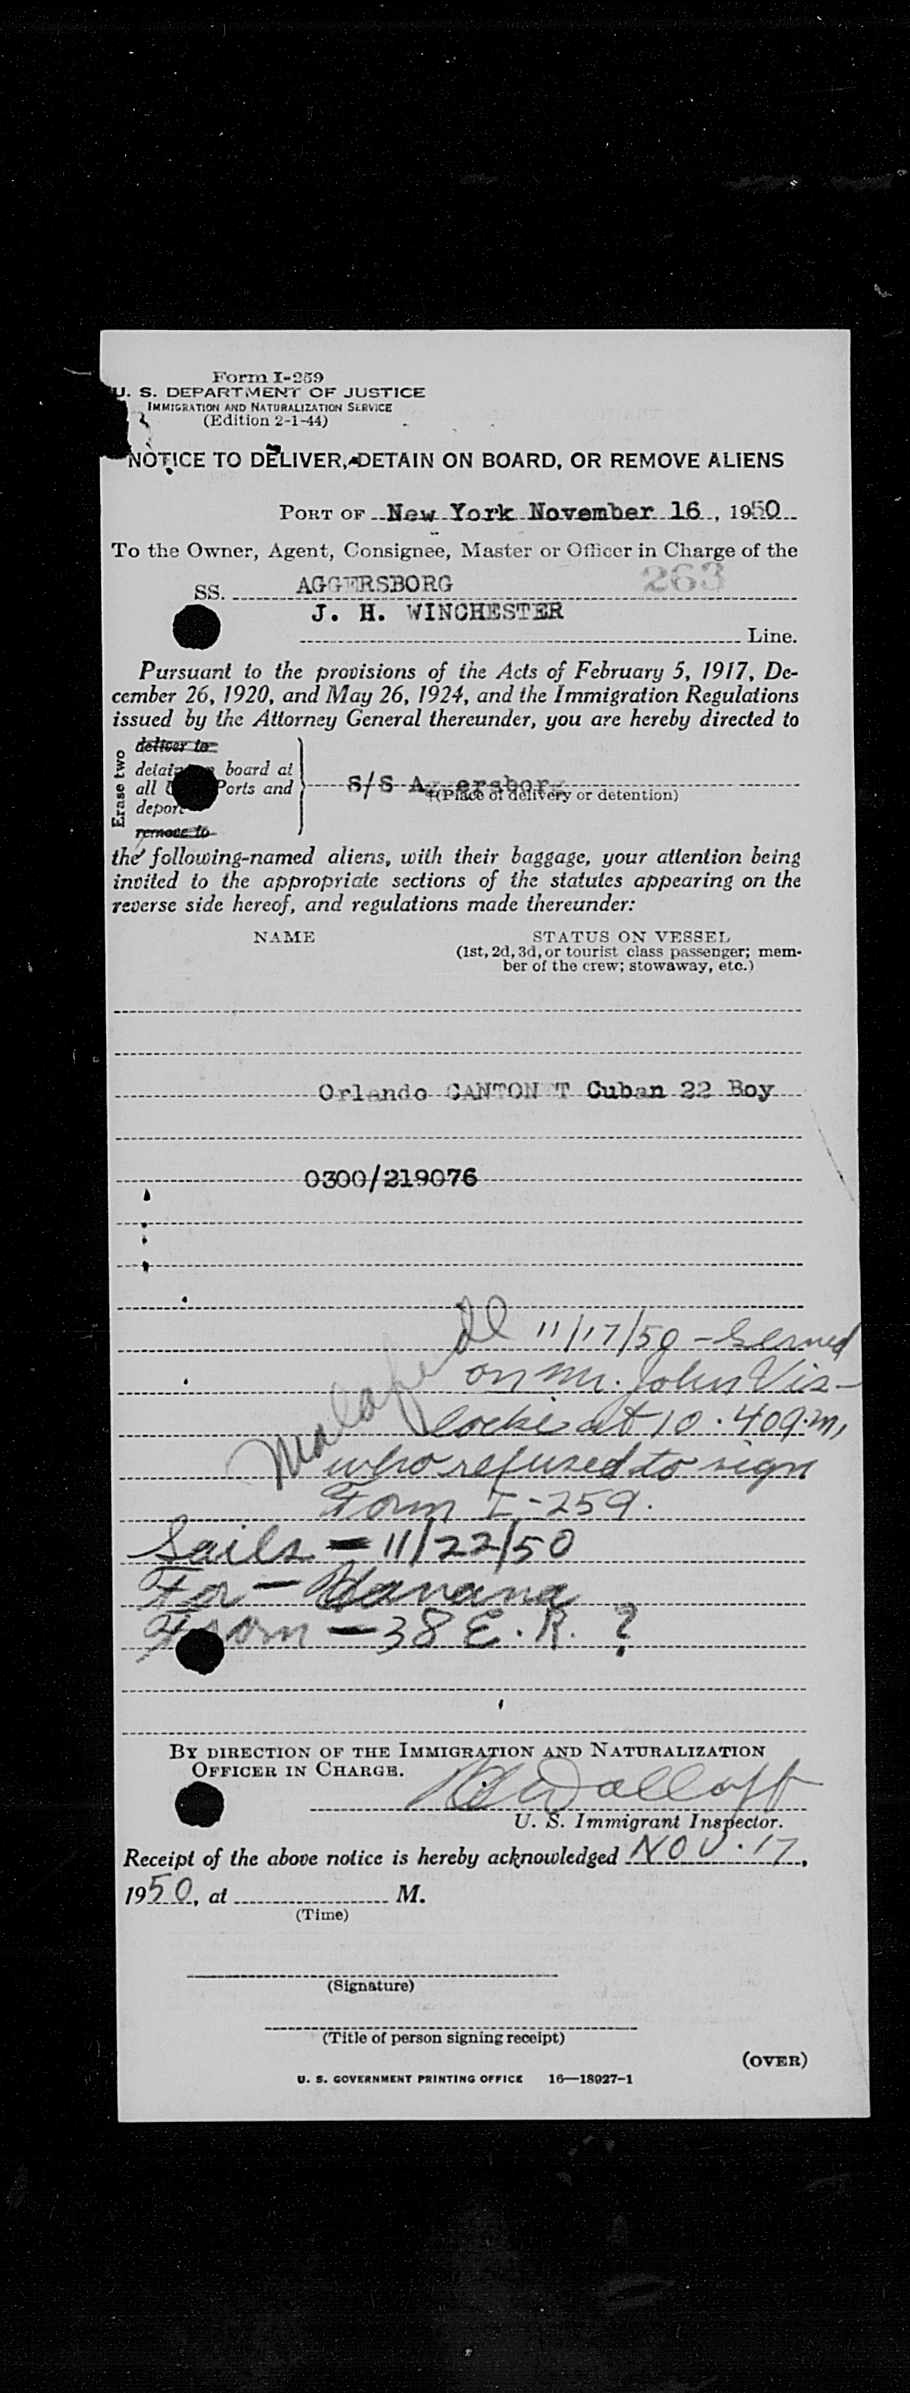 Form I-259
U. S. DEPARTMENT OF JUSTICE
IMMIGRATION AND NATURALIZATION SERVICE
(Edition 2-1-44)
NOTICE TO DELIVER, DETAIN ON BOARD, OR REMOVE ALIENS
PORT OF New York November 16, 1950
To the Owner, Agent, Consignee, Master or Officer in Charge of the
263
SS. AGGERSBORG
J. H. WINCHESTER
Line.
Pursuant to the provisions of the Acts of February 5, 1917, De-
cember 26, 1920, and May 26, 1924, and the Immigration Regulations
issued by the Attorney General thereunder, you are hereby directed to
Erase two
deliver to
detain board at
all Ports and
deport
remove to
S/S Aggersborg
(Place of delivery or detention)
the following-named aliens, with their baggage, your attention being
invited to the appropriate sections of the statutes appearing on the
reverse side hereof, and regulations made thereunder:
NAME STATUS ON VESSEL
(1st, 2d, 3d, or tourist class passenger; mem-
ber of the crew; stowaway, etc.)
Orlando CANTON T Cuban 22 Boy
0300/219076
Malafide
11/17/50 - Served
on Mr. John Vis-
locki at 10.40 a.m,
who refused to sign
Form I-259.
Sails - 11/22/50
For - Havana
From - 38 E. R. ?
BY DIRECTION OF THE IMMIGRATION AND NATURALIZATION
OFFICER IN CHARGE.
U. S. Immigrant Inspector.
Receipt of the above notice is hereby acknowledged NOV. 17,
1950, at M.
(Time)
(Signature)
(Title of person signing receipt)
(OVER)
U. S. GOVERNMENT PRINTING OFFICE 16—18927-1